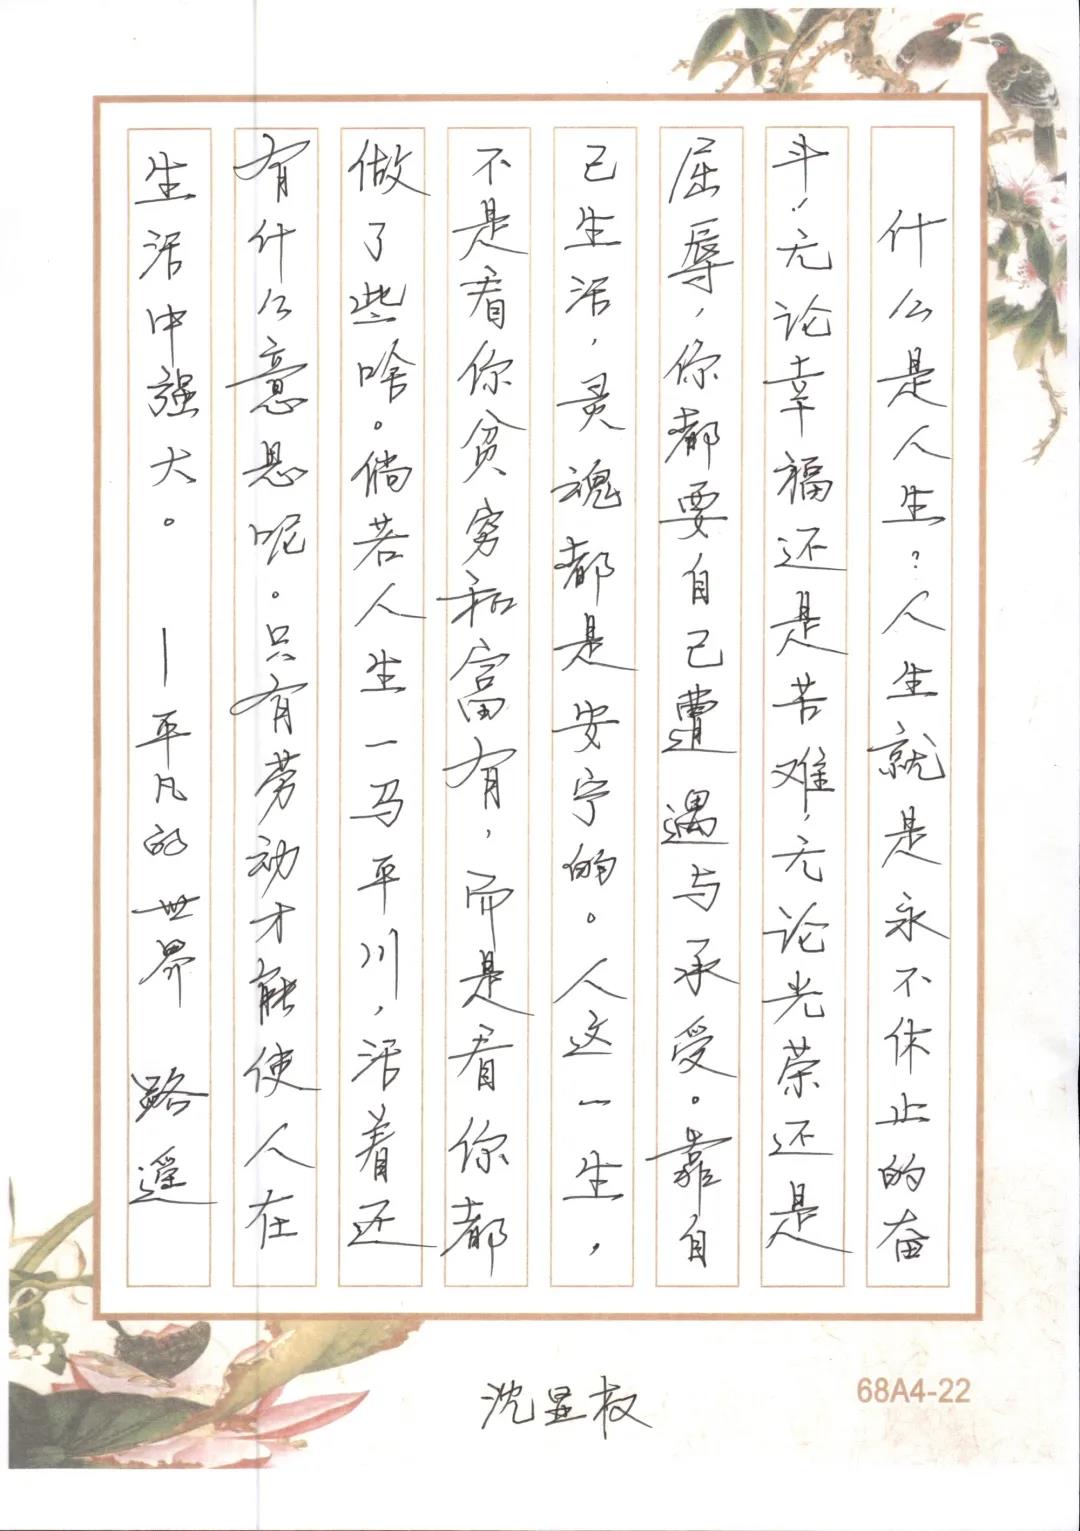 什么是人生？人生就是永不休止的奋
斗！无论幸福还是苦难，无论光荣还是
屈辱，你都要自己遭遇与承受。靠自
己生活，灵魂都是安宁的。人这一生，
不是看你贫穷和富有，而是看你都
做了些啥。倘若人生一马平川，活着还
有什么意思呢。只有劳动才能使人在
生活中强大。 —平凡的世界 路遥
沈显权
68A4-22